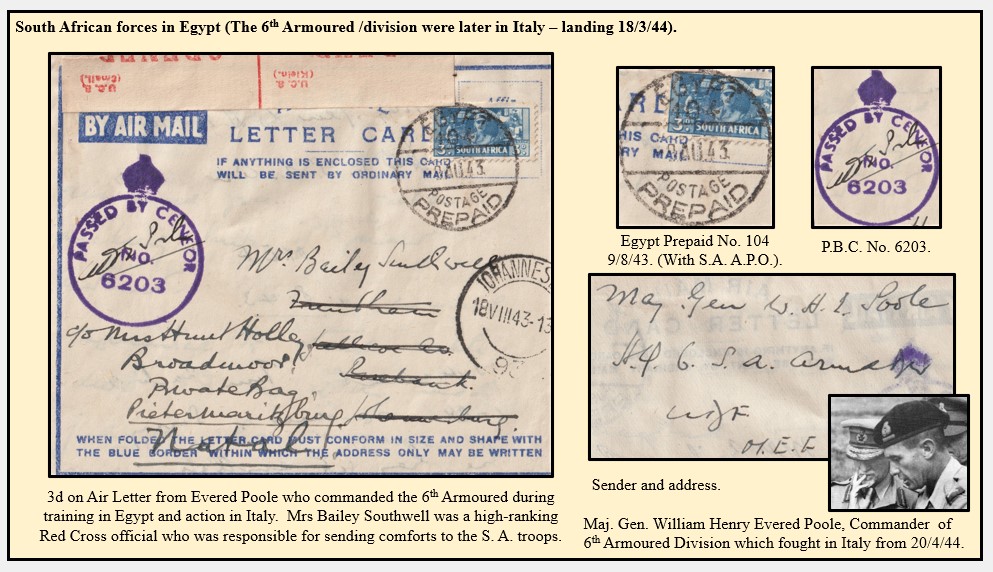 South African forces in Egypt (The 6th Armoured /division were later in Italy – landing 18/3/44).
U.C.B
(Small.)
U.C.B.
(Klein.)
BY AIR MAIL
LETTER CARD
IF ANYTHING IS ENCLOSED THIS CARD
WILL BE SENT BY ORDINARY MAIL
3D
SOUTH AFRICA
EGYPT
AU.43
POSTAGE
PREPAID
PASSED BY CENSOR
NO.
6203
Mrs Bailey Southwell
JOHANNES
18VIII43-13
c/o Mrs Hunt Holley
Broadmoor
Private Bag
Pietermaritzburg
Natal
WHEN FOLDED THE LETTER CARD MUST CONFORM IN SIZE AND SHAPE WITH
THE BLUE BORDER WITHIN WHICH THE ADDRESS ONLY MAY BE WRITTEN
3d on Air Letter from Evered Poole who commanded the 6th Armoured during
training in Egypt and action in Italy. Mrs Bailey Southwell was a high-ranking
Red Cross official who was responsible for sending comforts to the S. A. troops.
RD
HIS CARD
RY MAIL
3D
SOUTH AFRICA
EGYPT
AU.43
POSTAGE
PREPAID
Egypt Prepaid No. 104
9/8/43. (With S.A. A.P.O.).
PASSED BY CENSOR
NO.
6203
P.B.C. No. 6203.
Maj. Gen W. H. E. Poole
HQ 6 S.A. Armd
UDF
M.E.F
Sender and address.
Maj. Gen. William Henry Evered Poole, Commander of
6th Armoured Division which fought in Italy from 20/4/44.